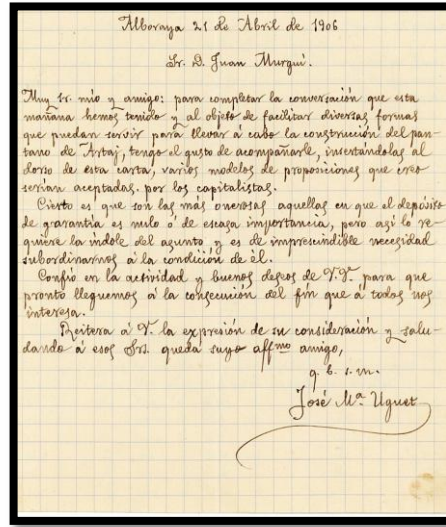 Alboraya 21 de Abril de 1906
Sr. D. Juan Murgui.
Muy Sr. mio y amigo: para completar la conversación que esta
mañana hemos tenido y al objeto de facilitar diversas formas
que puedan servir para llevar á cabo la construcción del pan-
tano de Artaj, tengo el gusto de acompañarle, insertándolas al
dorso de esta carta, varios modelos de proposiciones que creo
serian aceptadas por los capitalistas.
Cierto es que son las más onerosas aquellas en que el depósito
de garantía es nulo ó de escasa importancia, pero asi lo re-
quiere la indole del asunto y es de imprescindible necesidad
subordinarnos á la condición de él.
Confio en la actividad y buenos deseos de V.V. para que
pronto lleguemos á la consecución del fin que á todas nos
interesa.
Reitera á V. la expresión de su consideración y salu-
dando á esos Srs. queda suyo affmo amigo,
q. b. s. m.
José Mª Uguet